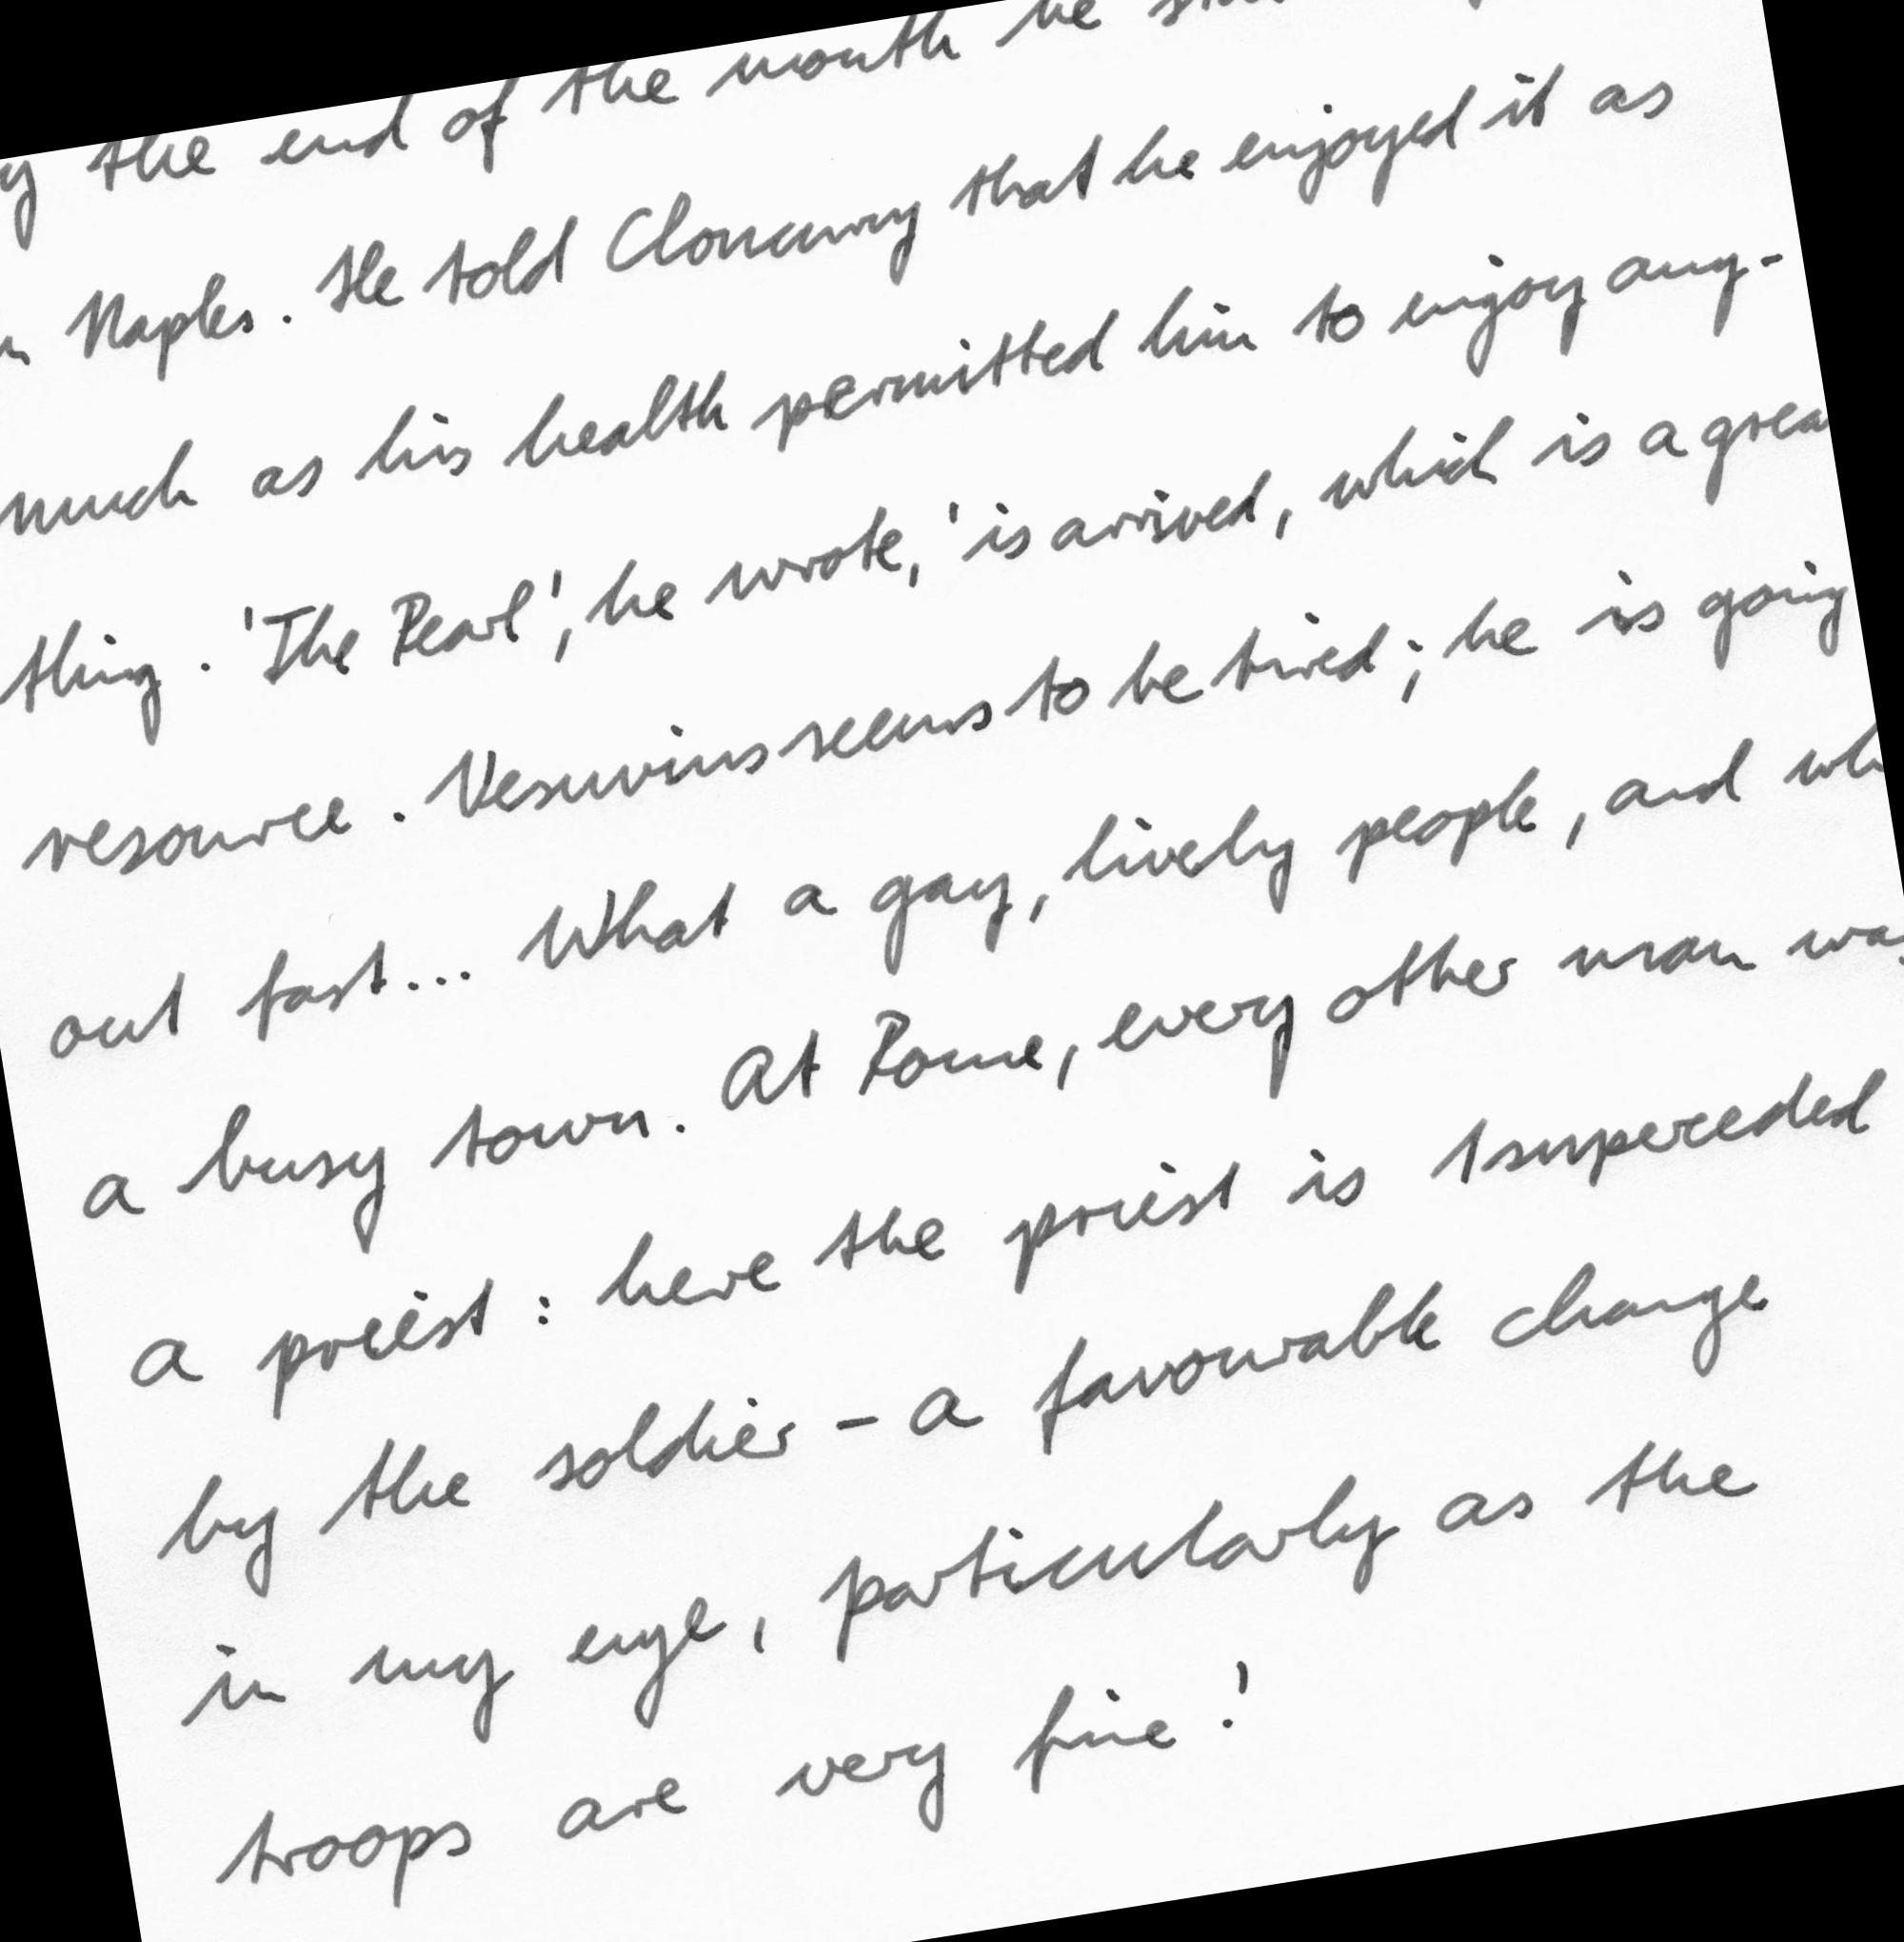 the end of the month he
Naples. He told Cloncurry that he enjoyed it as
much as his health permitted him to enjoy any-
thing. 'The Pearl', he wrote, 'is arrived, which is a grea
resource. Vesuvius seems to be tired; he is going
out fast... What a gay, lively people, and wh
a busy town. At Rome, every other man was
a priest: here the priest is 1superceded
by the soldier - a favourable change
in my eye, particularly as the
troops are very fine!